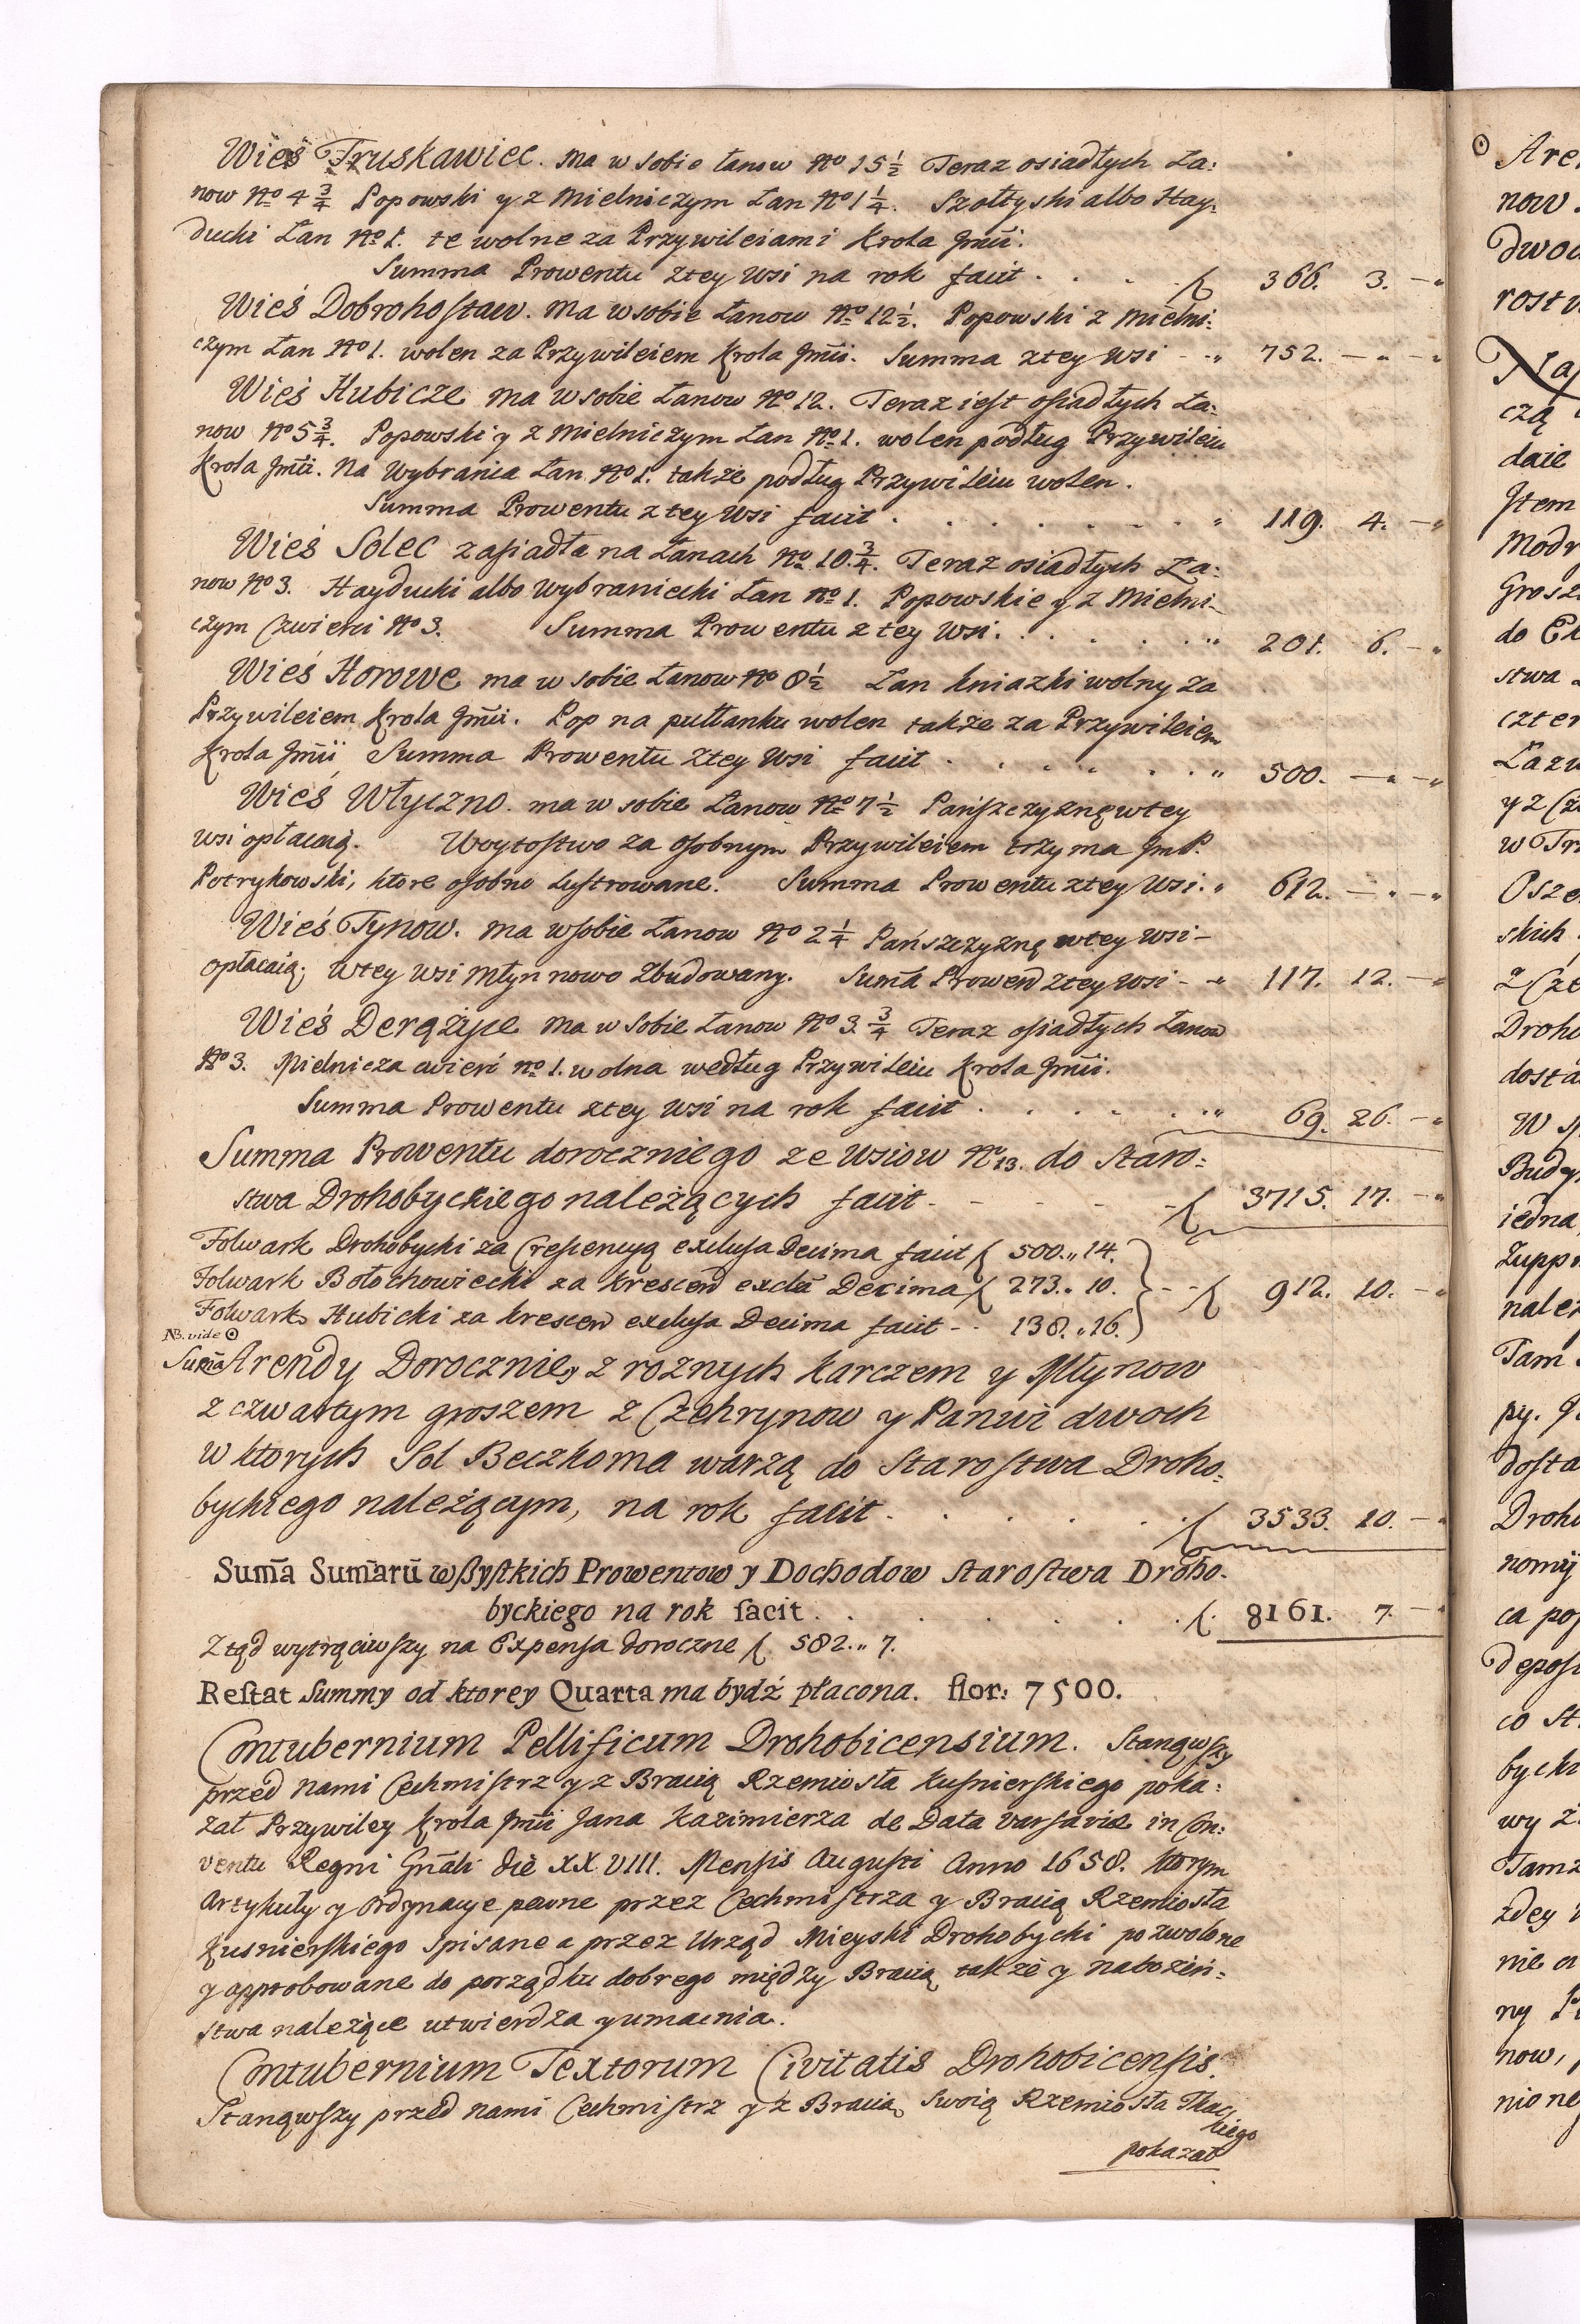 Wieś Truskawiec. ma w sobie Łanow No 15 1/2 Teraz osiadłych Ła:
now No 4 3/4 Popowski y z Mielniczym Łan No 1 1/4. Szołtyski albo Hay:
ducki Łan No 1. te wolne za Przywileiami Krola Jmći.
Summa Prowentu z tey wsi na rok facit . . . . ƒ 366. 3. —
Wieś Dobrohostaw. Ma w sobie Łanow No 12 1/2. Popowski z Mielni:
czym Łan No 1. wolen za Przywileiem Krola Jmći. Summa z tey wsi - " 752. — " — "
Wieś Hubicze ma w sobie Łanow No 12. Teraz iest osiadłych Ła:
now No 5 3/4. Popowski y z Mielniczym Łan No 1. wolen podług Przywileiu
Krola Jmći. Na Wybranca Łan No 1. także podług Przywileiu wolen.
Summa Prowentu z tey wsi facit . . . . . . . . " 119. 4. — "
Wieś Solec zasiadła na Łanach No 10. 3/4. Teraz osiadłych Ła:
now No 3. Hayducki albo Wybraniecki Łan No 1. Popowskie y z Mielni-
czym Czwierci No 3. Summa Prowentu z tey wsi. . . . . . . " 201. 6. — "
Wieś Horowe ma w sobie Łanow No 8 1/2 Łan kniazki wolny za
Przywileiem Krola Jmći. Pop na pułłanku wolen także za Przywileiem
Krola Jmći Summa Prowentu z tey wsi facit . . . . . . " 500. — " — "
Wieś Włyczno. ma w sobie Łanow No 7 1/2 Pańszczyznę w tey
wsi opłacaią. Woytostwo za osobnym Przywileiem trzyma JmP.
Potrykowski, ktore osobno Lustrowane. Summa Prowentu z tey wsi. " 612. — " — "
Wieś Tynow. ma w sobie Łanow No 2 1/4 Pańszczyznę w tey wsi -
opłacaią. W tey wsi Młyn nowo zbudowany. Sum̄a Prowen̄ z tey wsi - " 117. 12. — "
Wieś Derążyce ma w sobie Łanow No 3 3/4 Teraz osiadłych Łanow
No 3. Mielnicza cwierć No 1. wolna według Przywileiu Krola Jmći.
Summa Prowentu z tey wsi na rok facit . . . . . " 69. 26. — "
Summa Prowentu doroczniego ze Wsiow No 13. do Staro:
stwa Drohobyckiego należących facit - - - - - ƒ 3715. 17. — "
Folwark Drohobycki za Crescencyą exclusa Decima facit ƒ 500. " 14.
Folwark Bołochowiecki za krescen̄ exclā Decima ƒ 273. " 10. - - ƒ 912. 10. — "
Folwark Hubicki za krescen̄ exclusa Decima facit - - 138. " 16.
NB. vide ⊙
Sum̄a Arendy Doroczniey z roznych Karczem y Młynow
z czwartym groszem z Czehrynow y Panwi dwoch
w ktorych Sol Beczkoma warzą do Starostwa Droho:
byckiego należącym, na rok facit . . . . . . ƒ 3533. 10. — "
Sum̄a Sum̄arū wszystkich Prowentow y Dochodow Starostwa Droho-
byckiego na rok facit . . . . . . . . ƒ. 8161. 7. — "
Ztąd wytrąciwszy na Expensa doroczne ƒ 582. " 7.
Restat Summy od ktorey Quarta ma bydź płacona. flor: 7500.
Contubernium Pellificum Drohobicensium. Stanąwszy
przed nami Cechmistrz y z Bracią Rzemiosła Kuśnierskiego poka:
zał Przywiley Krola Jmći Jana Kazimierza de Data Varsaviæ in Con:
ventu Regni Gn̄ali die XXVIII. Mensis Augusti Anno 1658. ktorym
Artykuły y Ordynacye pewne przez Cechmistrza y Bracią Rzemiosła
Kusnierskiego spisane a przez Urząd Mieyski Drohobycki pozwolone
y approbowane do porządku dobrego między Bracią także y nabożeń:
stwa należące utwierdza y umacnia.
Contubernium Textorum Civitatis Drohobicensis.
Stanąwszy przed nami Cechmistrz y z Bracią Swoią Rzemiosła Tkac
kiego
pokazał